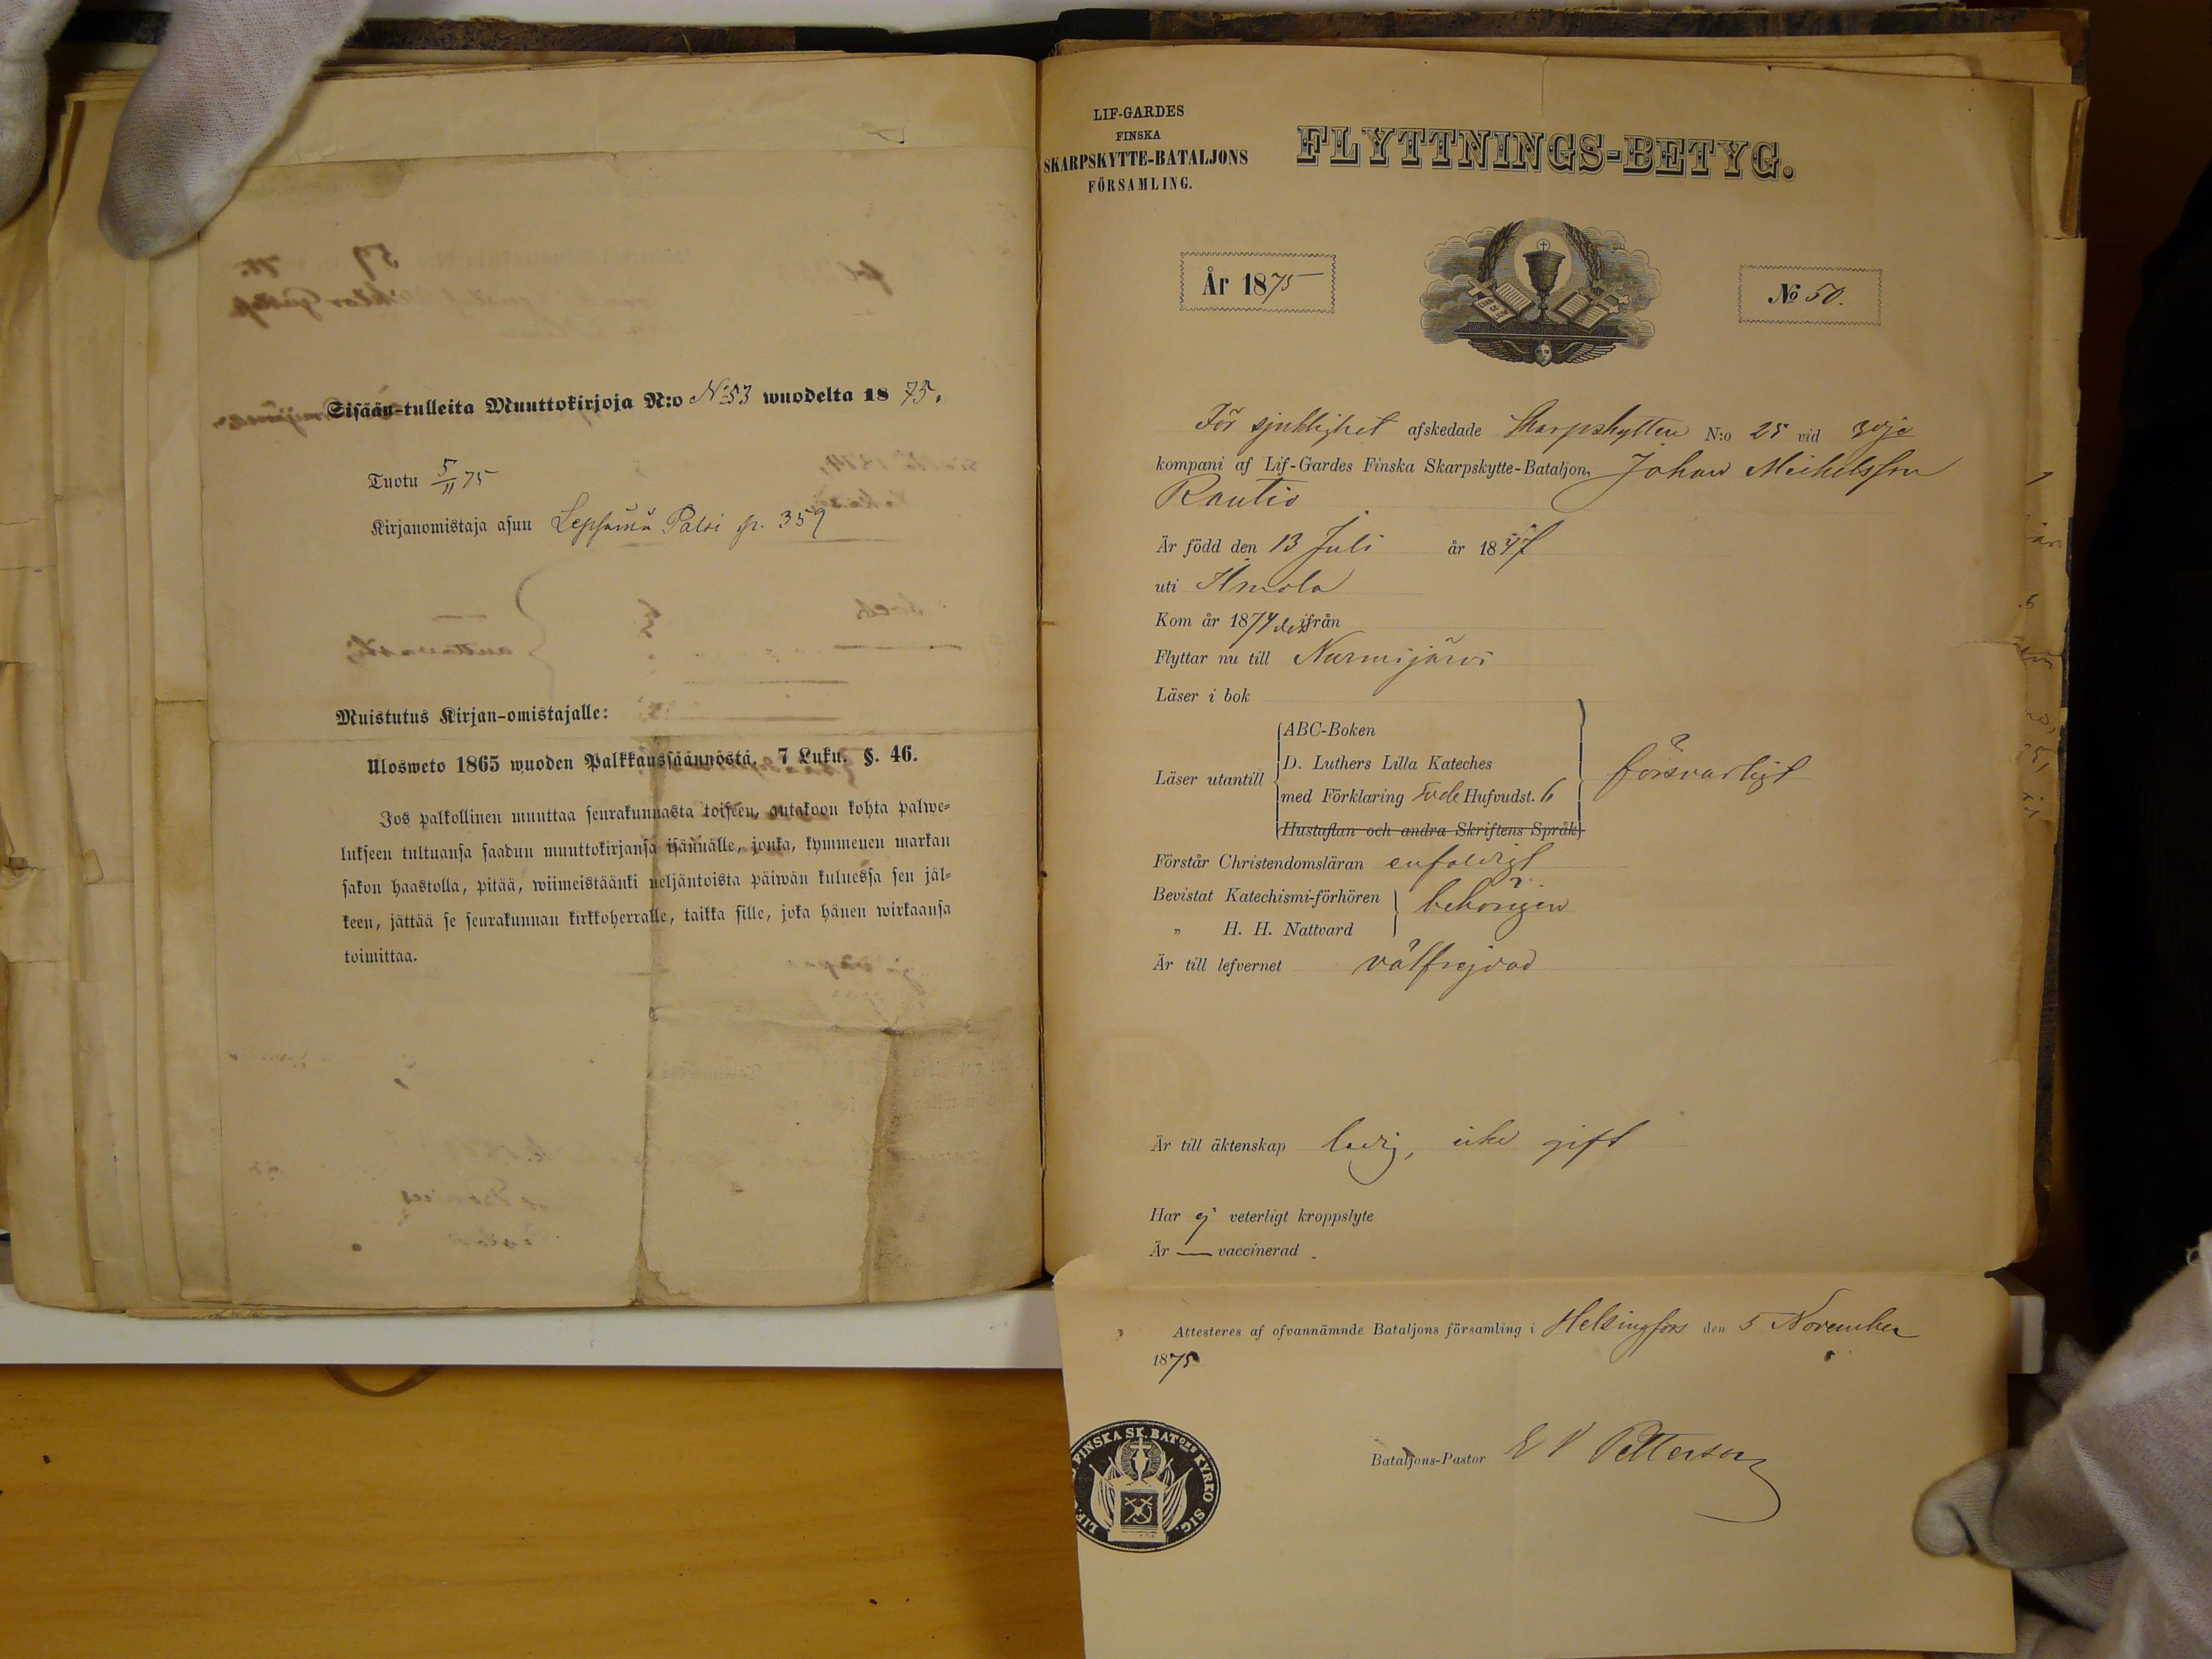 Sisään-tulleita Muuttokirjoja N:o N:53 wuodelta 18 75.
Tuotu 5/11 75
Kirjanomistaja asuu Lepsämä Palsi p. 359
Muistutus Kirjan-omistajalle:
Ulosweto 1865 wuoden Palkkaussäännöstä, 7 Luku. §. 46.
Jos palkollinen muuttaa seurakunnasta toiseen, antakoon kohta palwe=
lukseen tultuansa saadun muuttokirjansa isännälle, jonka, kymmenen markan
sakon haastolla, pitää, wiimeistäänki neljäntoista päiwän kuluessa sen jäl=
keen, jättää se seurakunnan kirkkoherralle, taikka sille, joka hänen wirkaansa
toimittaa.
LIF-GARDES
FINSKA
SKARPSKYTTE-BATALJONS
FÖRSAMLING.
FLYTTNINGS-BETYG.
År 1875
No 50.
För sjuklighet afskedade Skarpskytten N:o 25 vid 3dje
kompani af Lif-Gardes Finska Skarpskytte-Bataljon, Johan Michelsson
Rautio
Är född den 13 Juli år 1847
uti Ilmola
Kom år 1874 derifrån
Flyttar nu till Nurmijärvi
Läser i bok
Läser utantill
ABC-Boken
D. Luthers Lilla Kateches
med Förklaring Hufvudst. 6
Hustaflan och andra Skriftens Språk
försvarligt
Förstår Christendomsläran enfaldigt
Bevistat Katechismi-förhören
„ H. H. Nattvard
behörigen
Är till lefvernet välfrejdad
Är till äktenskap ledig, icke gift
Har ej veterligt kroppslyte
Är — vaccinerad.
Attesteres af ofvannämnde Bataljons församling i Helsingfors den 5 November
1875
Bataljons-Pastor E V Petterson
LIF. G. FINSKA SK. BATONS KYRKO SIG.